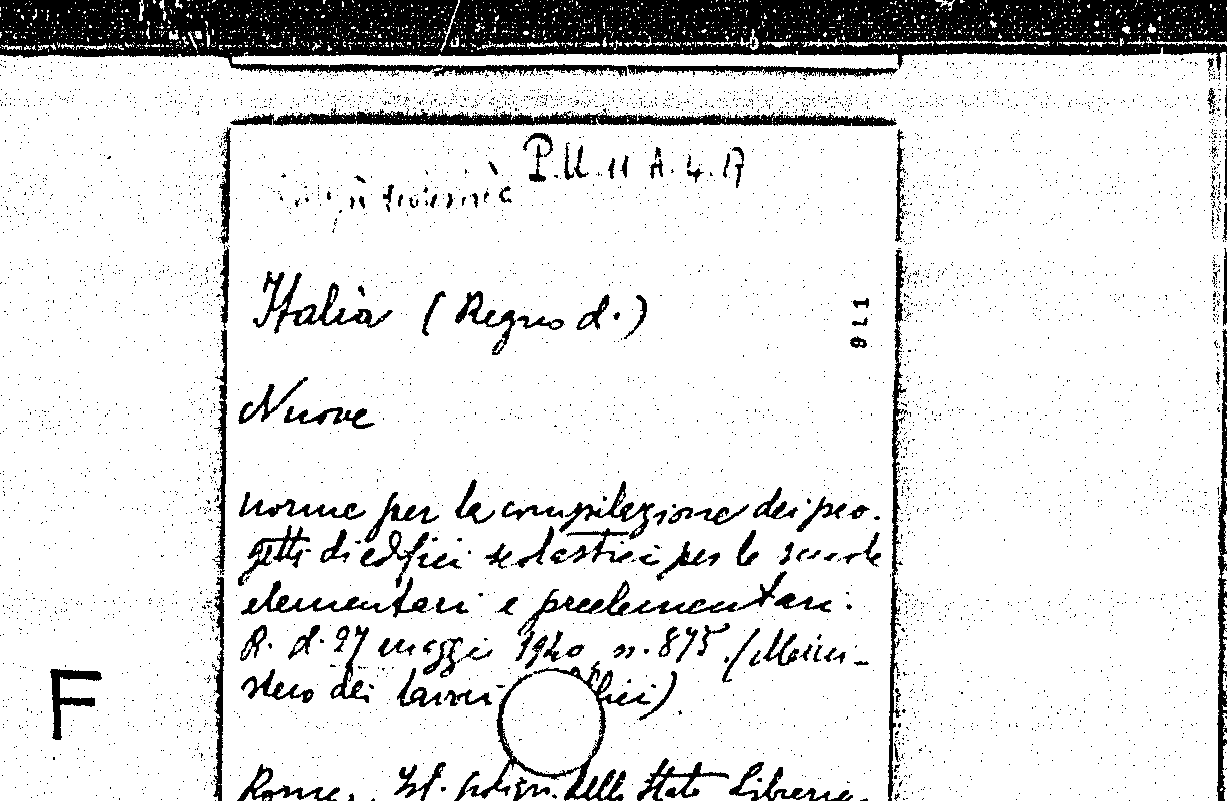 P.U. 11 A. 4. 17
Italia (Regno d.)
911
Nuove
norme per la compilazione dei pro.
getti di edifici scolastici per le scuole
elementari e preelementari.
R. d. 27 maggi 1940, n. 875. (Mini-
stero dei lavori blici)
F
Roma, Ist. poligr. dello Stato Libreria,